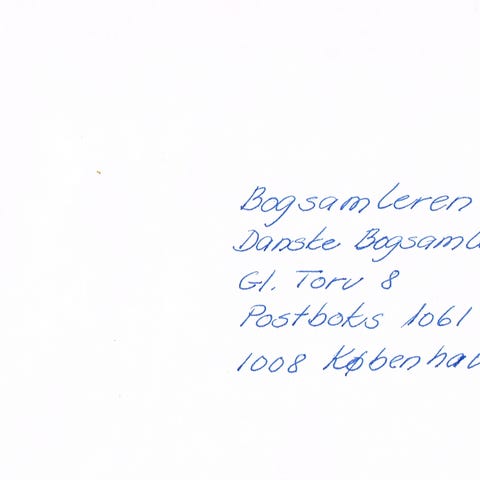 Bogsamleren
Danske Bogsaml
Gl. Torv 8
Postboks 1061
1008 Københav